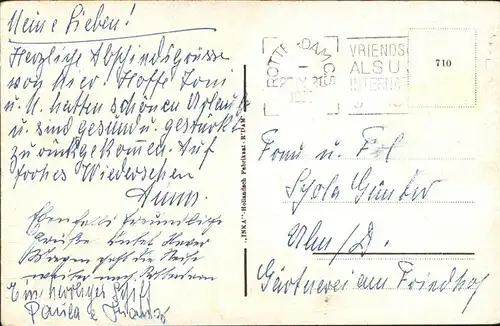 Meine Lieben!
Herzliche Abschiedsgrüsse
von hier. Hoffe Toni
u. U. hatten schönen Urlaub
u. sind gesund u. gestärkt
zurückgekommen. Auf
frohes Wiedersehen
Ebenfalls freundliche
Grüße.
Wagen geht die Reise
weiter nach Rotterdam
Ein herzliches
Paula &
„INKA"-Hollandsch Fabrikaat-R'DAM
ROTTERDAM C.S
VRIENDS
ALS U
INTERNA
710
Frau u. Frl
Günter
Ulm/D.
Gärtnerei am Friedhof